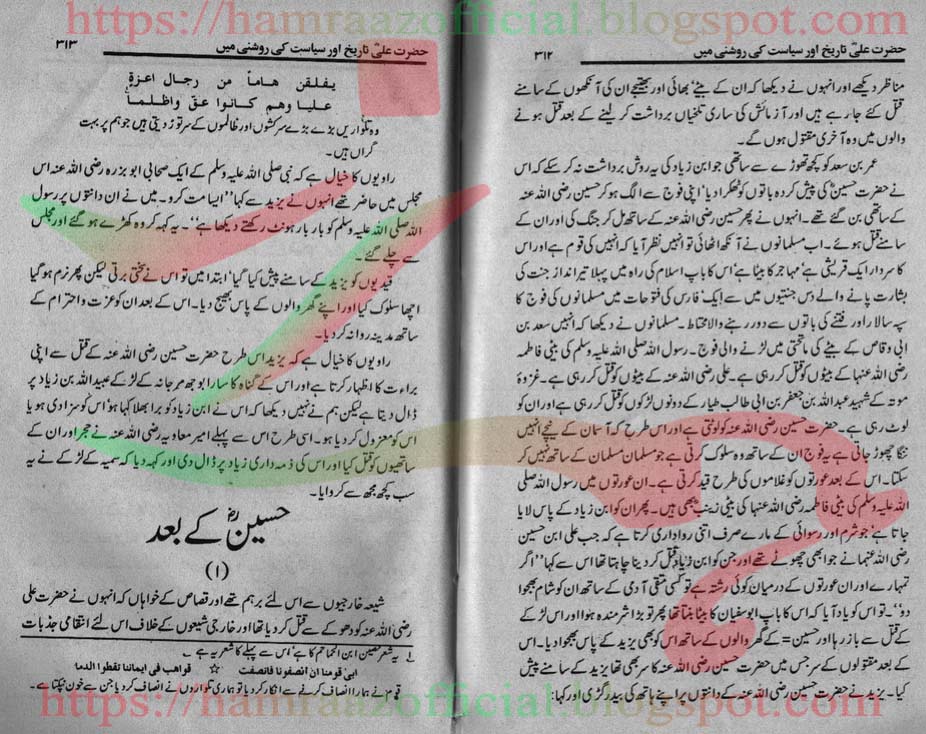 https://hamraazofficial.blogspot.com
حضرت علیؓ تاریخ اور سیاست کی روشنی میں ۳۱۲
مناظر دیکھے اور انہوں نے دیکھا کہ ان کے بیٹے، بھائی اور بھتیجے ان کی آنکھوں کے سامنے
قتل کئے جا رہے ہیں اور آزمائش کی ساری تلخیاں برداشت کر لینے کے بعد قتل ہونے
والوں میں وہ آخری مقتول ہوں گے۔
عمر بن سعد کو کچھ تھوڑے سے ساتھی جو ابن زیاد کی یہ روش برداشت نہ کر سکے کہ اس
نے حضرت حسینؓ کی پیش کردہ باتوں کو ٹھکرا دیا، اپنی فوج سے الگ ہو کر حسین رضی اللہ عنہ
کے ساتھی بن گئے تھے۔ انہوں نے پھر حسین رضی اللہ عنہ کے ساتھ مل کر جنگ کی اور ان کے
سامنے قتل ہوئے۔ اب مسلمانوں نے آنکھ اٹھائی تو انہیں نظر آیا کہ انہیں کی قوم ہے اور اس
کا سردار ایک قریشی ہے مہاجر کا بیٹا ہے، اس کا باپ اسلام کی راہ میں پہلا تیر انداز جنت کی
بشارت پانے والے دس جنتیوں میں سے ایک، فارس کی فتوحات میں مسلمانوں کی فوج کا
سپہ سالار اور فتنے کی باتوں سے دور رہنے والا محتاط۔ مسلمانوں نے دیکھا کہ انہیں سعد بن
ابی وقاص کے بیٹے کی ماتحتی میں لڑنے والی فوج۔ رسول اللہ صلی اللہ علیہ وسلم کی بیٹی فاطمہ
رضی اللہ عنہا کے بیٹوں کو قتل کر رہی ہے۔ علی رضی اللہ عنہ کے بیٹوں کو قتل کر رہی ہے۔ غزوۂ
موتہ کے شہید عبداللہ بن جعفر بن ابی طالب طیار کے دونوں لڑکوں کو قتل کر رہی ہے اور ان کو
لوٹ رہی ہے۔ حضرت حسین رضی اللہ عنہ کو لوٹتی ہے اور اس طرح کہ آسمان کے نیچے انہیں
ننگا چھوڑ جاتی ہے یہ فوج ان کے ساتھ وہ سلوک کرتی ہے جو مسلمان مسلمان کے ساتھ نہیں کر
سکتا۔ اس کے بعد عورتوں کو غلاموں کی طرح قید کرتی ہے۔ ان عورتوں میں رسول اللہ صلی
اللہ علیہ وسلم کی بیٹی فاطمہ رضی اللہ عنہا کی بیٹی زینب بھی ہیں۔ پھر ان کو ابن زیاد کے پاس لایا
جاتا ہے جو شرم اور رسوائی کے مارے صرف اتنی رواداری کرتا ہے کہ جب علی ابن حسین
رضی اللہ عنہما نے جو ابھی چھوٹے تھے اور جن کو ابن زیاد قتل کر دینا چاہتا تھا اس سے کہا ''اگر
تمہارے اور ان عورتوں کے درمیان کوئی رشتہ ہے تو کسی متقی آدمی کے ساتھ ان کو شام بھجوا
دو''۔ تو اس کو یاد آیا کہ اس کا باپ ابوسفیان کا بیٹا بنتا تھا پھر تو بڑا شرمندہ ہوا اور اس لڑکے
کے قتل سے باز رہا اور حسین = کے گھر والوں کے ساتھ اس کو بھی یزید کے پاس بھجوا دیا۔ اس
کے بعد مقتولوں کے سر جس میں حضرت حسین رضی اللہ عنہ کا سر بھی تھا یزید کے سامنے پیش
کیا۔ یزید نے حضرت حسین رضی اللہ عنہ کے دانتوں پر اپنے ہاتھ کی بید رگڑی اور کہا
حضرت علیؓ تاریخ اور سیاست کی روشنی میں ۳۱۳
یفلقن هاماً من رجال اعزة
علینا وهم کانوا عق واظلما
وہ تلواریں بڑے بڑے سرکشوں اور ظالموں کے سر توڑ دیتی ہیں جو ہم پر بہت
گراں ہیں۔
راویوں کا خیال ہے کہ نبی صلی اللہ علیہ وسلم کے ایک صحابی ابو بزرہ رضی اللہ عنہ اس
مجلس میں حاضر تھے انہوں نے یزید سے کہا ''ایسا مت کرو۔ میں نے ان دانتوں پر رسول
اللہ صلی اللہ علیہ وسلم کو بار بار ہونٹ رکھتے دیکھا ہے''۔ یہ کہہ کر وہ کھڑے ہو گئے اور مجلس
سے چلے گئے۔
قیدیوں کو یزید کے سامنے پیش کیا گیا، ابتدا میں تو اس نے سختی برتی لیکن پھر نرم ہو گیا
اچھا سلوک کیا اور اپنے گھر والوں کے پاس بھیج دیا۔ اس کے بعد ان کو عزت و احترام کے
ساتھ مدینہ روانہ کر دیا۔
راویوں کا خیال ہے کہ یزید اس طرح حضرت حسین رضی اللہ عنہ کے قتل سے اپنی
براءت کا اظہار کرتا ہے اور اس کے گناہ کا سارا بوجھ مرجانہ کے لڑکے عبیداللہ بن زیاد پر
ڈال دیتا ہے لیکن ہم نے نہیں دیکھا کہ اس نے ابن زیاد کو برا بھلا کہا ہو، اس کو سزا دی ہو یا
اس کو معزول کر دیا ہو۔ اسی طرح اس سے پہلے امیر معاویہ رضی اللہ عنہ نے حجر اور ان کے
ساتھیوں کو قتل کیا اور اس کی ذمہ داری زیاد پر ڈال دی اور کہہ دیا کہ سمیہ کے لڑکے نے یہ
سب کچھ مجھ سے کروایا۔
حسینؓ کے بعد
(۱)
شیعہ خارجیوں سے اس لئے برہم تھے اور قصاص کے خواہاں کہ انہوں نے حضرت علی
رضی اللہ عنہ کو دھوکے سے قتل کر دیا تھا اور خارجی شیعوں کے خلاف اس لئے انتقامی جذبات
لے یہ شعر حصین ابن الحمام کا ہے، اس سے پہلے کا شعر یہ ہے۔
ابیٰ قومنا ان انصفونا فانصفت ☆ قواهب فی ایماننا تقطوا الدما
قوم نے ہمارا انصاف کرنے سے انکار کر دیا تو ہماری تلواروں نے انصاف کر دیا جن سے خون ٹپکتا ہے۔
https://hamraazofficial.blogspot.com